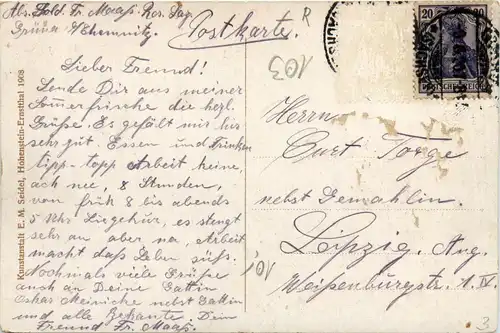 Abs. Sold. Fr. Maass. Res. Laz.
Grüna b/Chemnitz.
Postkarte.
R
103
20 20
DEUTSCHES REICH
Lieber Freund!
Sende Dir aus meiner
Sommerfrische die hzgl.
Grüße. Es gefällt mir hier
sehr gut Essen und trinken
tipp-topp Arbeit keine,
ach nee, 8 Stunden,
von früh 8 bis abends
5 Uhr Liegekur, es stengt
sehr an aber na, Arbeit
macht daß Leben süß.
Nochmals viele Grüße
auch an Deine Gattin
Oskar Meiniche nebst Gattin
und alle Bekannte. Dein
Freund Fr. Maass.
Kunstanstalt E. M. Seidel, Hohenstein-Ernstthal 1908
Herrn
Curt Torge
nebst Gemahlin.
Leipzig. Ang.
Weißenburgstr. 1. IV.
10,